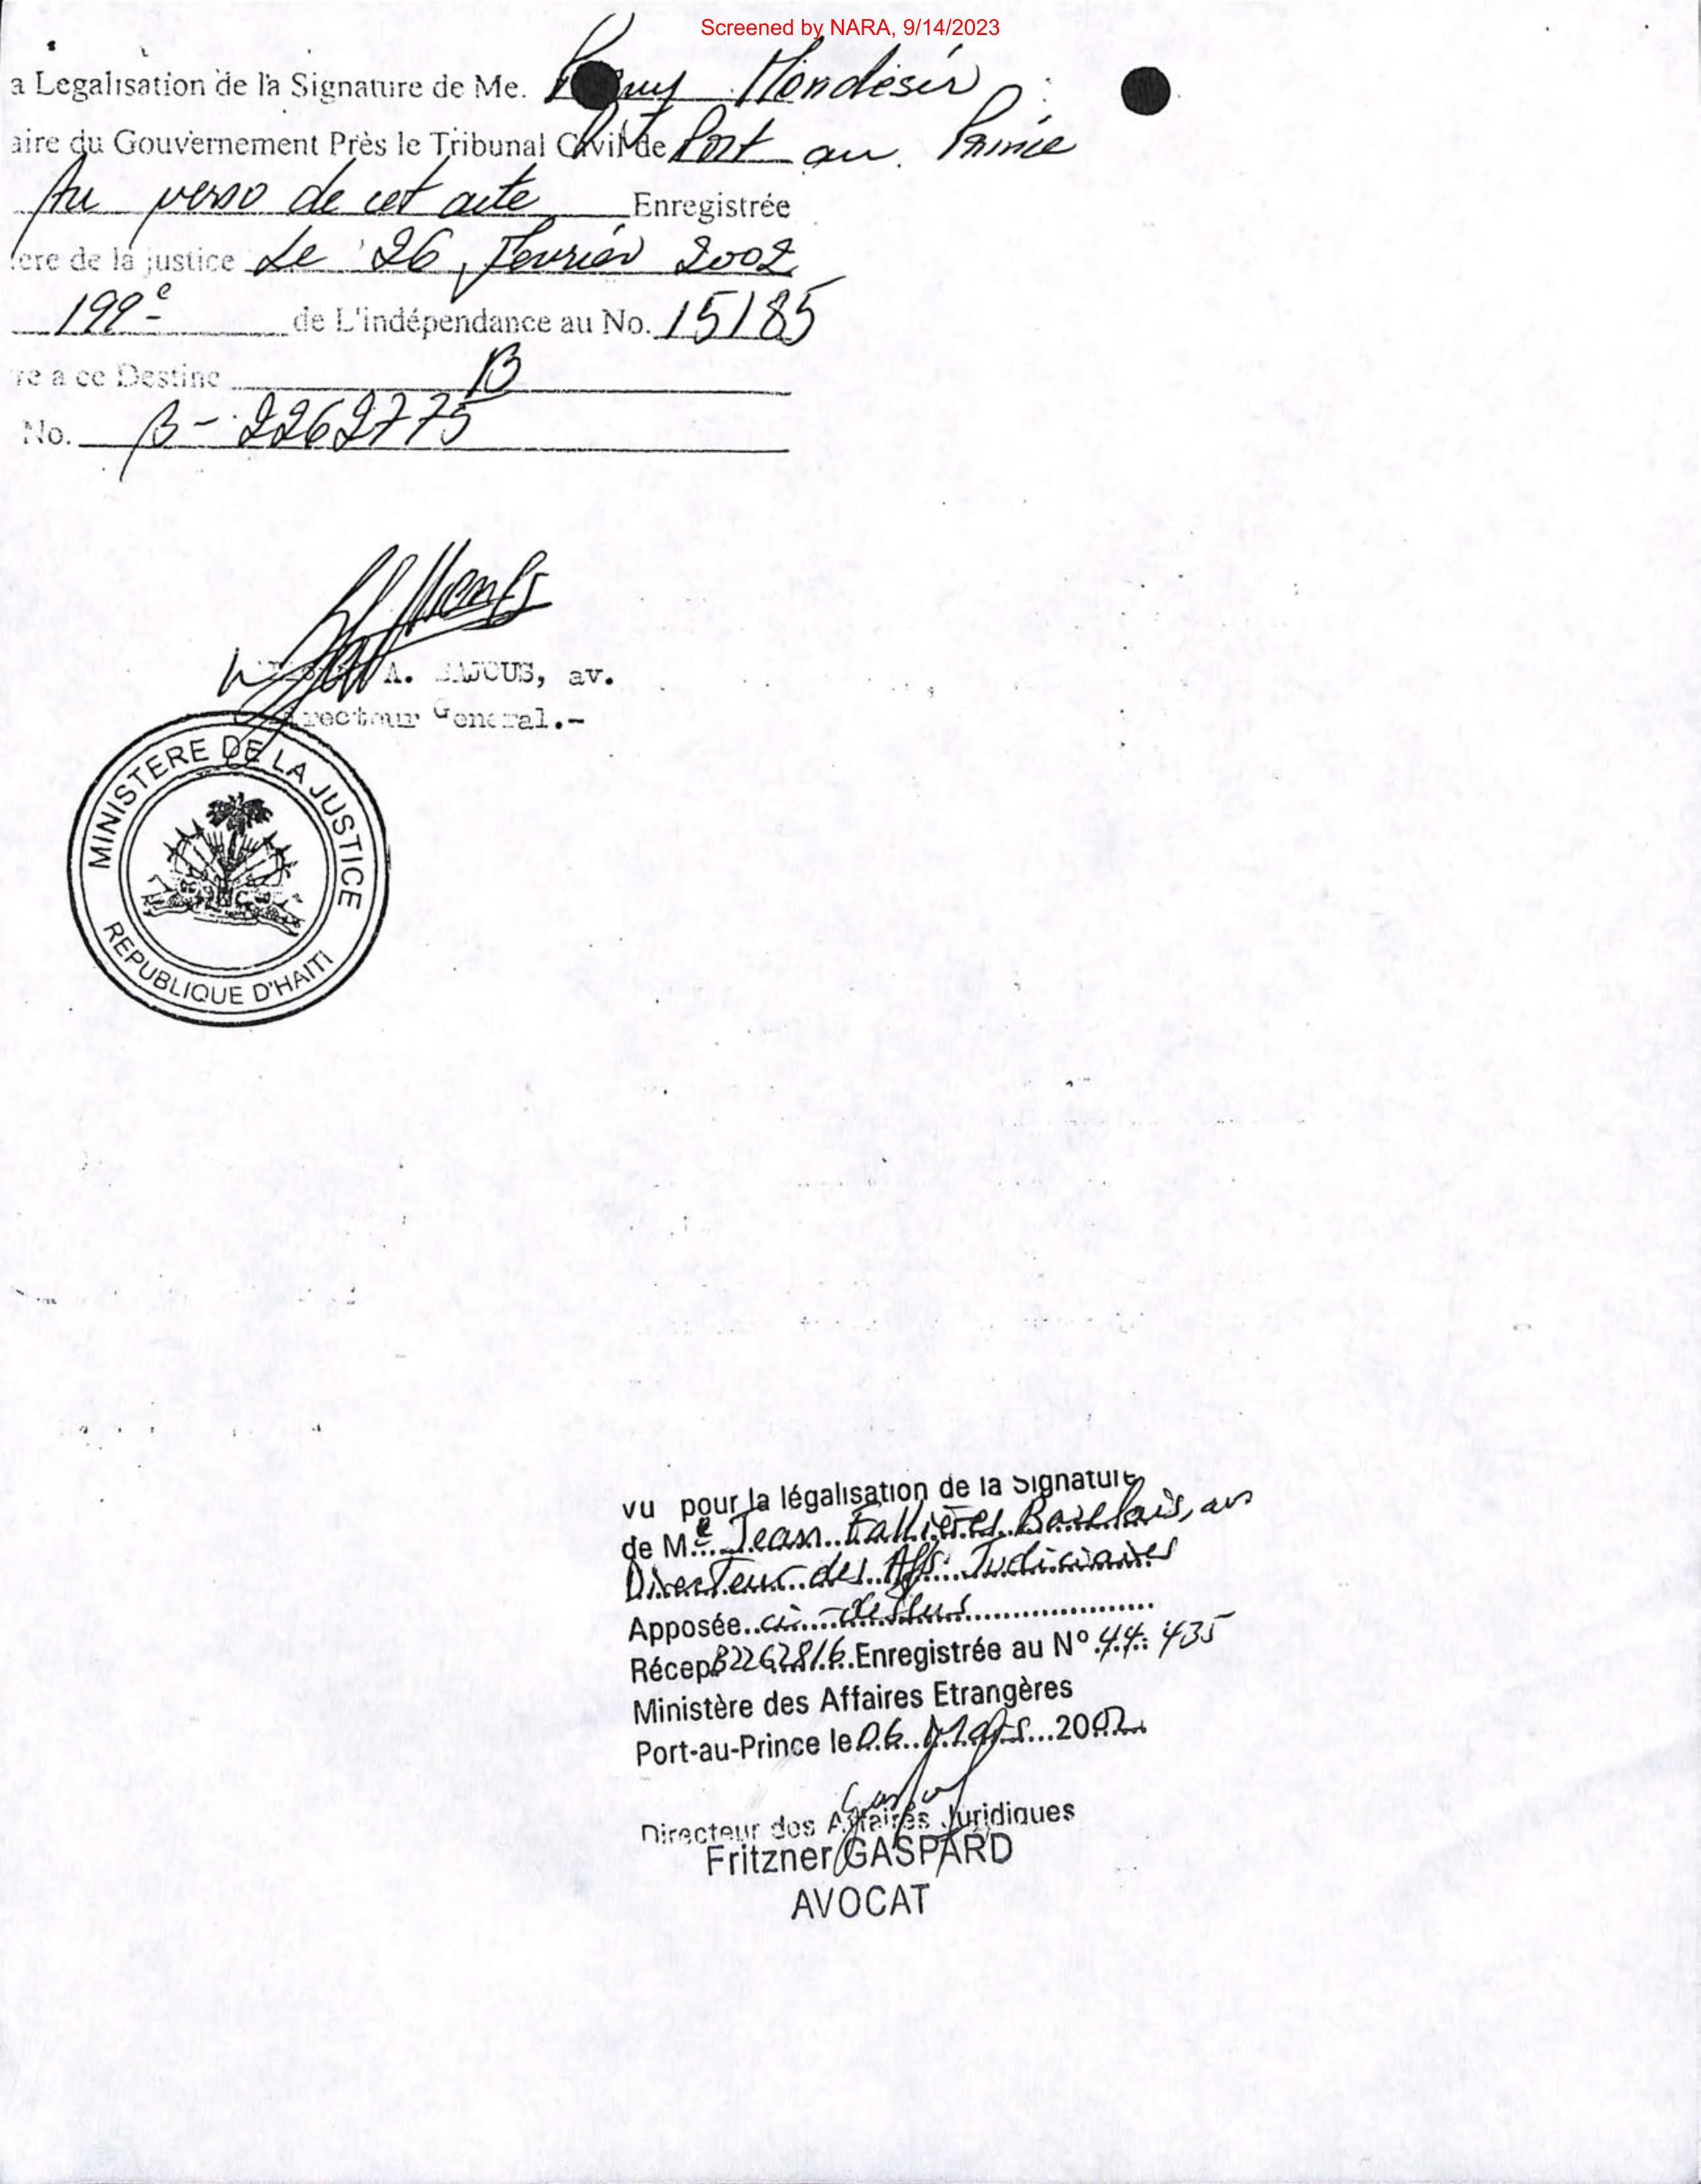 Screened by NARA, 9/14/2023
a Legalisation de la Signature de Me. Mondésir
aire du Gouvernement Près le Tribunal Civil de Port au Prince
Au verso de cet acte Enregistrée
ère de la justice Le 26 Fevrier 2002
199e de L'indépendance au No. 15185
re a ce Destine B
No. B-2262775
A. BAJCUS, av.
recteur General.-
MINISTERE DE LA JUSTICE
REPUBLIQUE D'HAITI
vu pour la légalisation de la Signature
de Me Jean Fallières Bazelais, av
Directeur des Aff. Judiciaires
Apposée ci-dessus
Récep B2262816 Enregistrée au No 44.435
Ministère des Affaires Etrangères
Port-au-Prince le 06 Mars 2002
Directeur des Affaires Juridiques
Fritzner GASPARD
AVOCAT